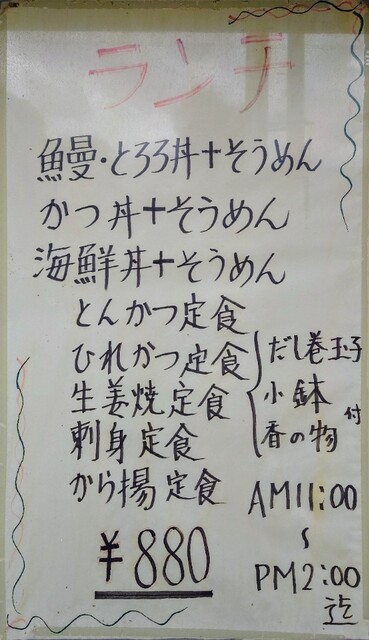 ランチ
鰻・とろろ丼+そうめん
かつ丼+そうめん
海鮮丼+そうめん
とんかつ定食
ひれかつ定食
生姜焼定食
刺身定食
から揚定食
だし巻玉子
小鉢
香の物付
¥880
AM11:00
~
PM2:00
迄